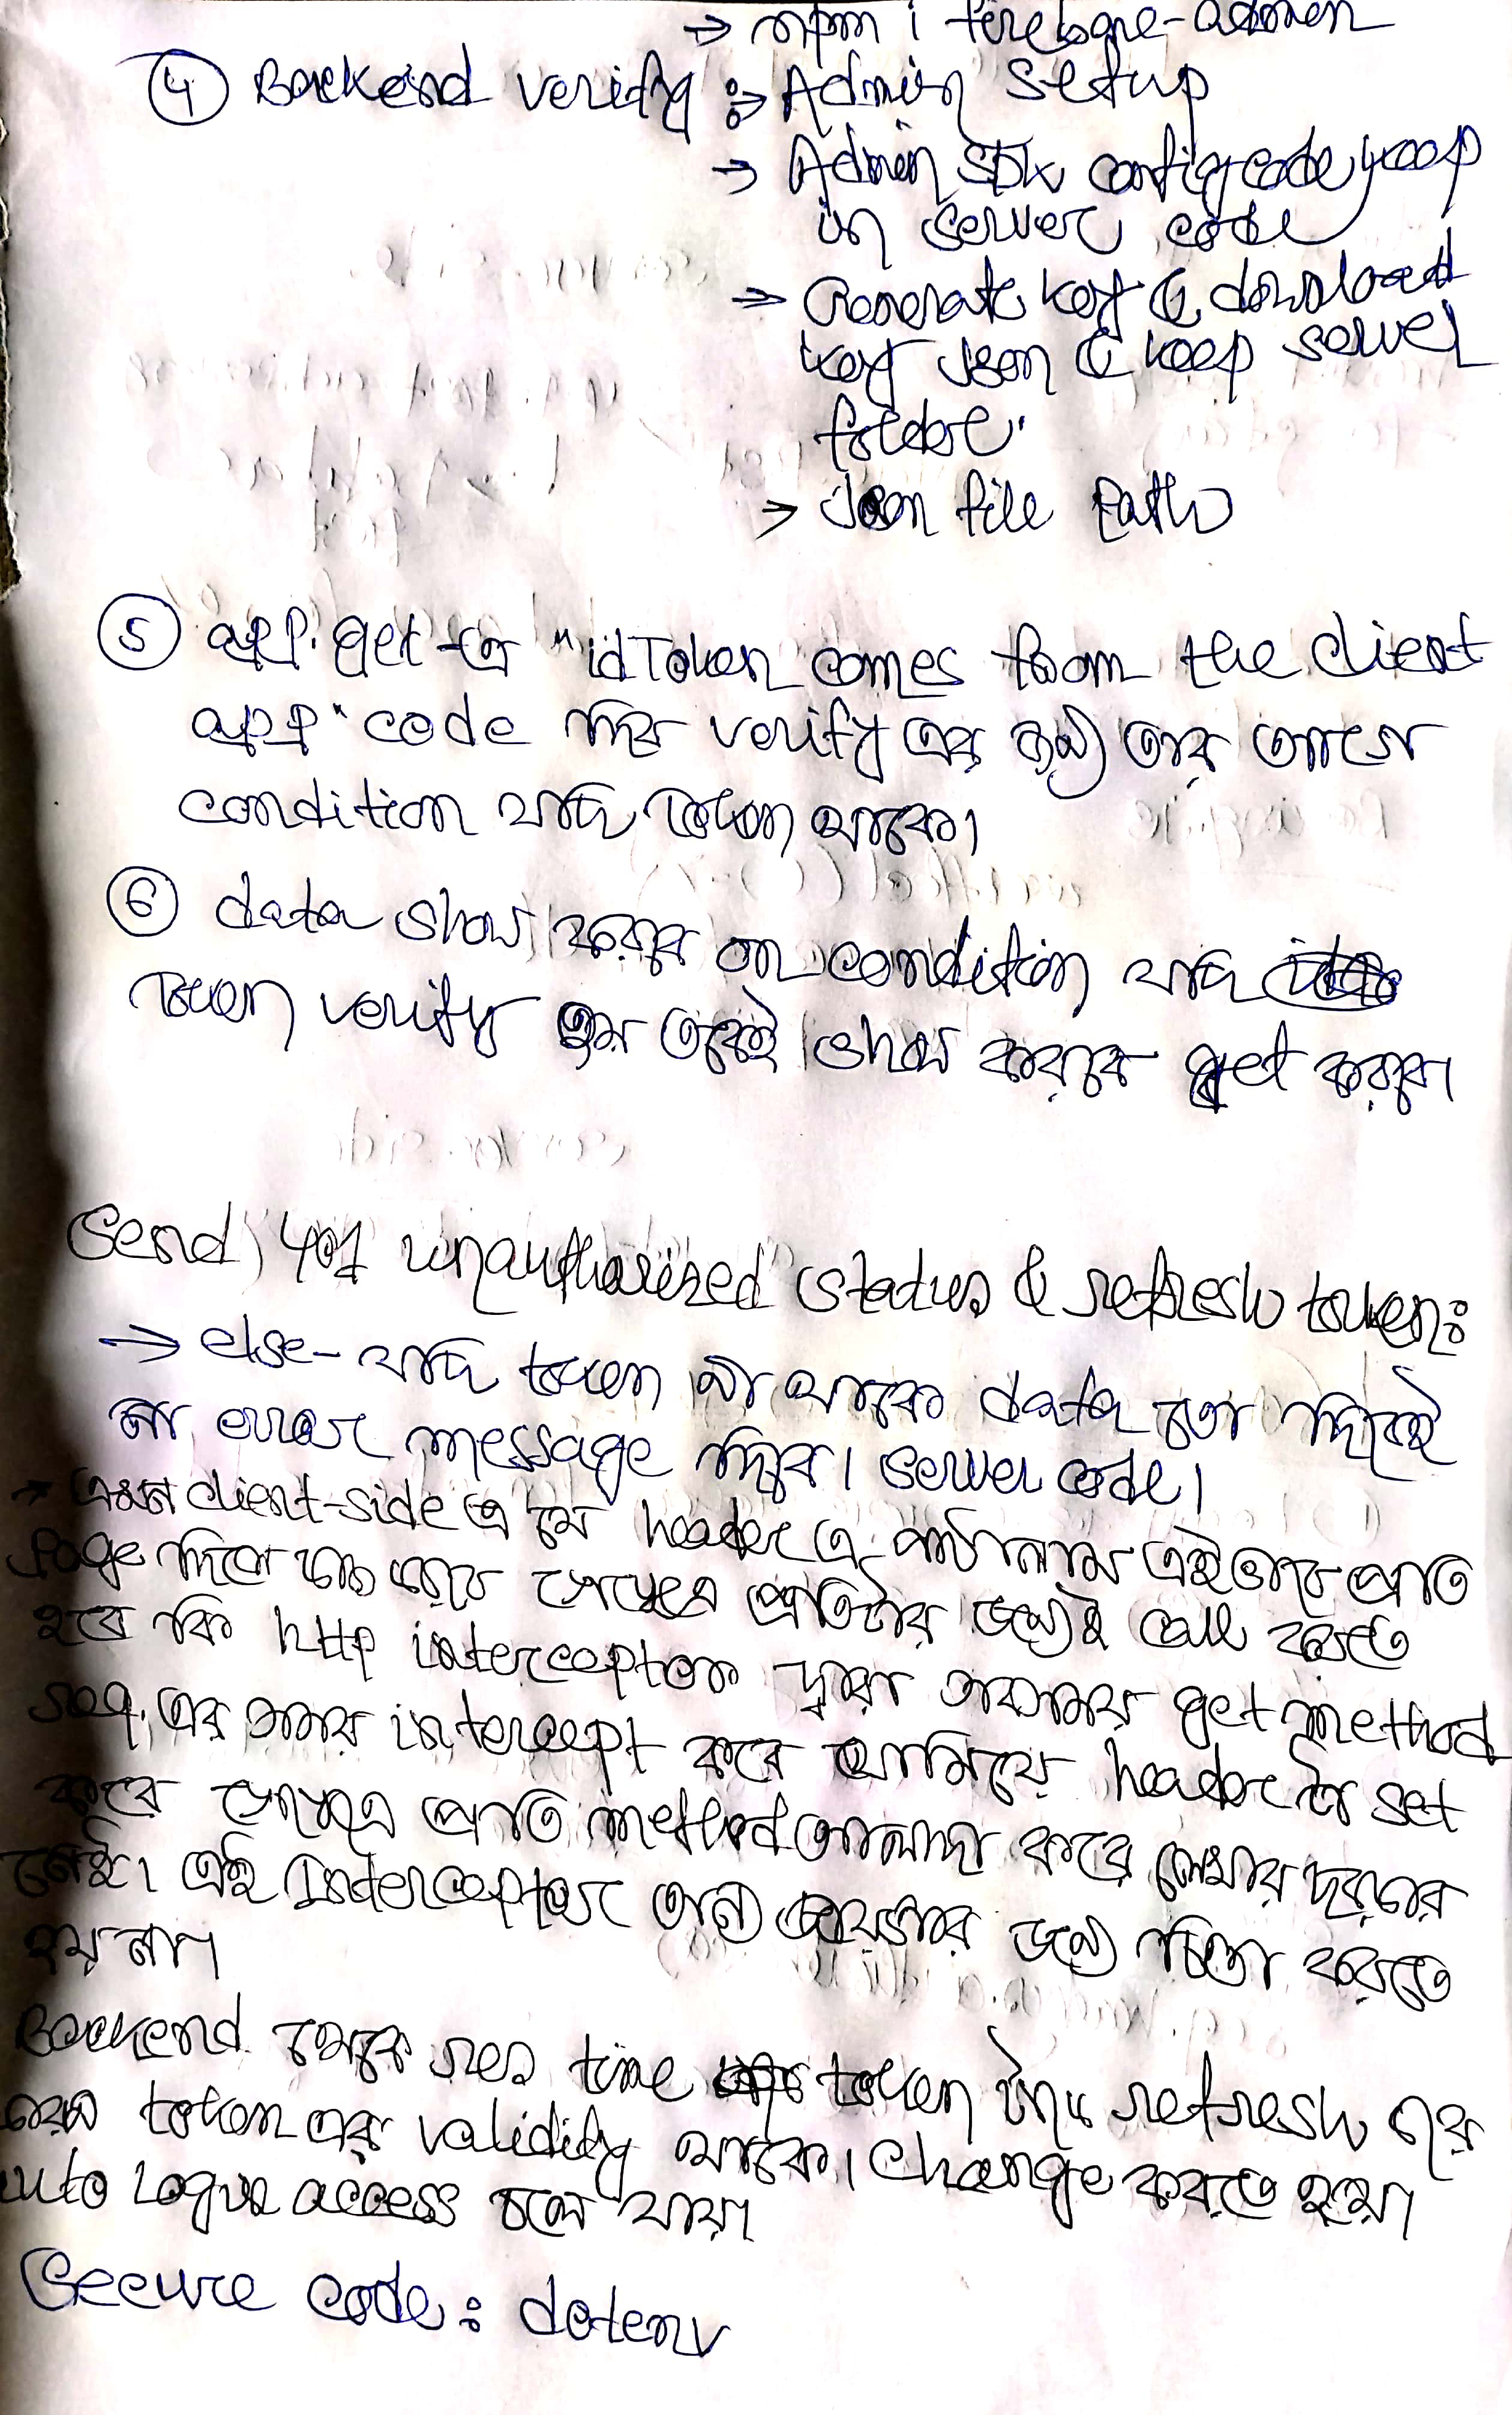 → npm i firebase-admin
④ Backend verify :→ Admin setup
→ Admin SDK config code keep
in server code
→ Generate key & download
key Json & keep server
folder.
→ Json file path
⑤ app.get-এ "idToken comes from the client
app" code দিব verify এর জন্য তার আগে
condition যদি Token থাকে।
⑥ data show করবে on condition যদি
Token verify হয় তবেই show করবে get করবে।
Send 401 unauthorized status & refresh token:
→ else- যদি token না থাকে data তো দিবেই
না error message দিবে। server code।
→ এখন client-side এ যে header এ পাঠালাম এইভাবে প্রতি
page দিতে প্রতিটার জন্যই call করতে
হবে কি http interceptor দ্বারা get method
req. এর সময় intercept করে থামিয়ে header টা set
করে প্রতি method আলাদা করে লেখার দরকার
নেই। এই Interceptor অন্য জায়গার জন্য চিন্তা করতে
হয় না।
Backend থেকে res time token টাও refresh হয়
token এর validity থাকে। change করতে হয়।
auto logout access চলে যায়।
Secure code: dotenv